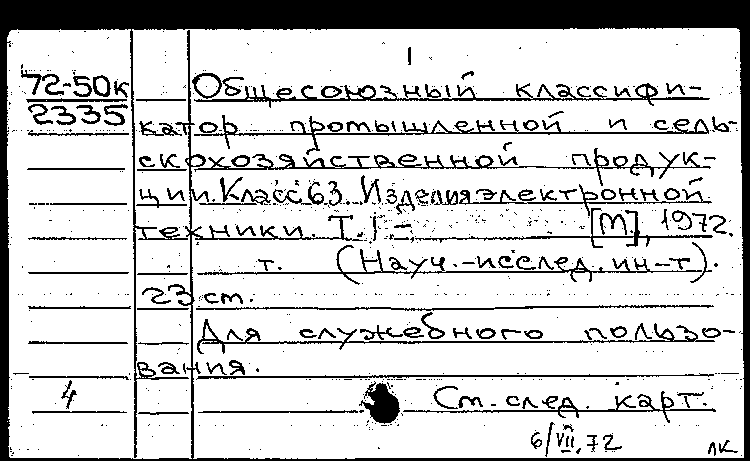 1
72-50к Общесоюзный классифи-
2335 катор промышленной и сель-
скохозяйственной продук-
ции. Класс 63. Изделия электронной
техники. Т. 1 - [М], 1972.
т. (Науч.-исслед. ин-т).
23 см.
Для служебного пользо-
вания.
4 См. след. карт.
6/VII.72 лк